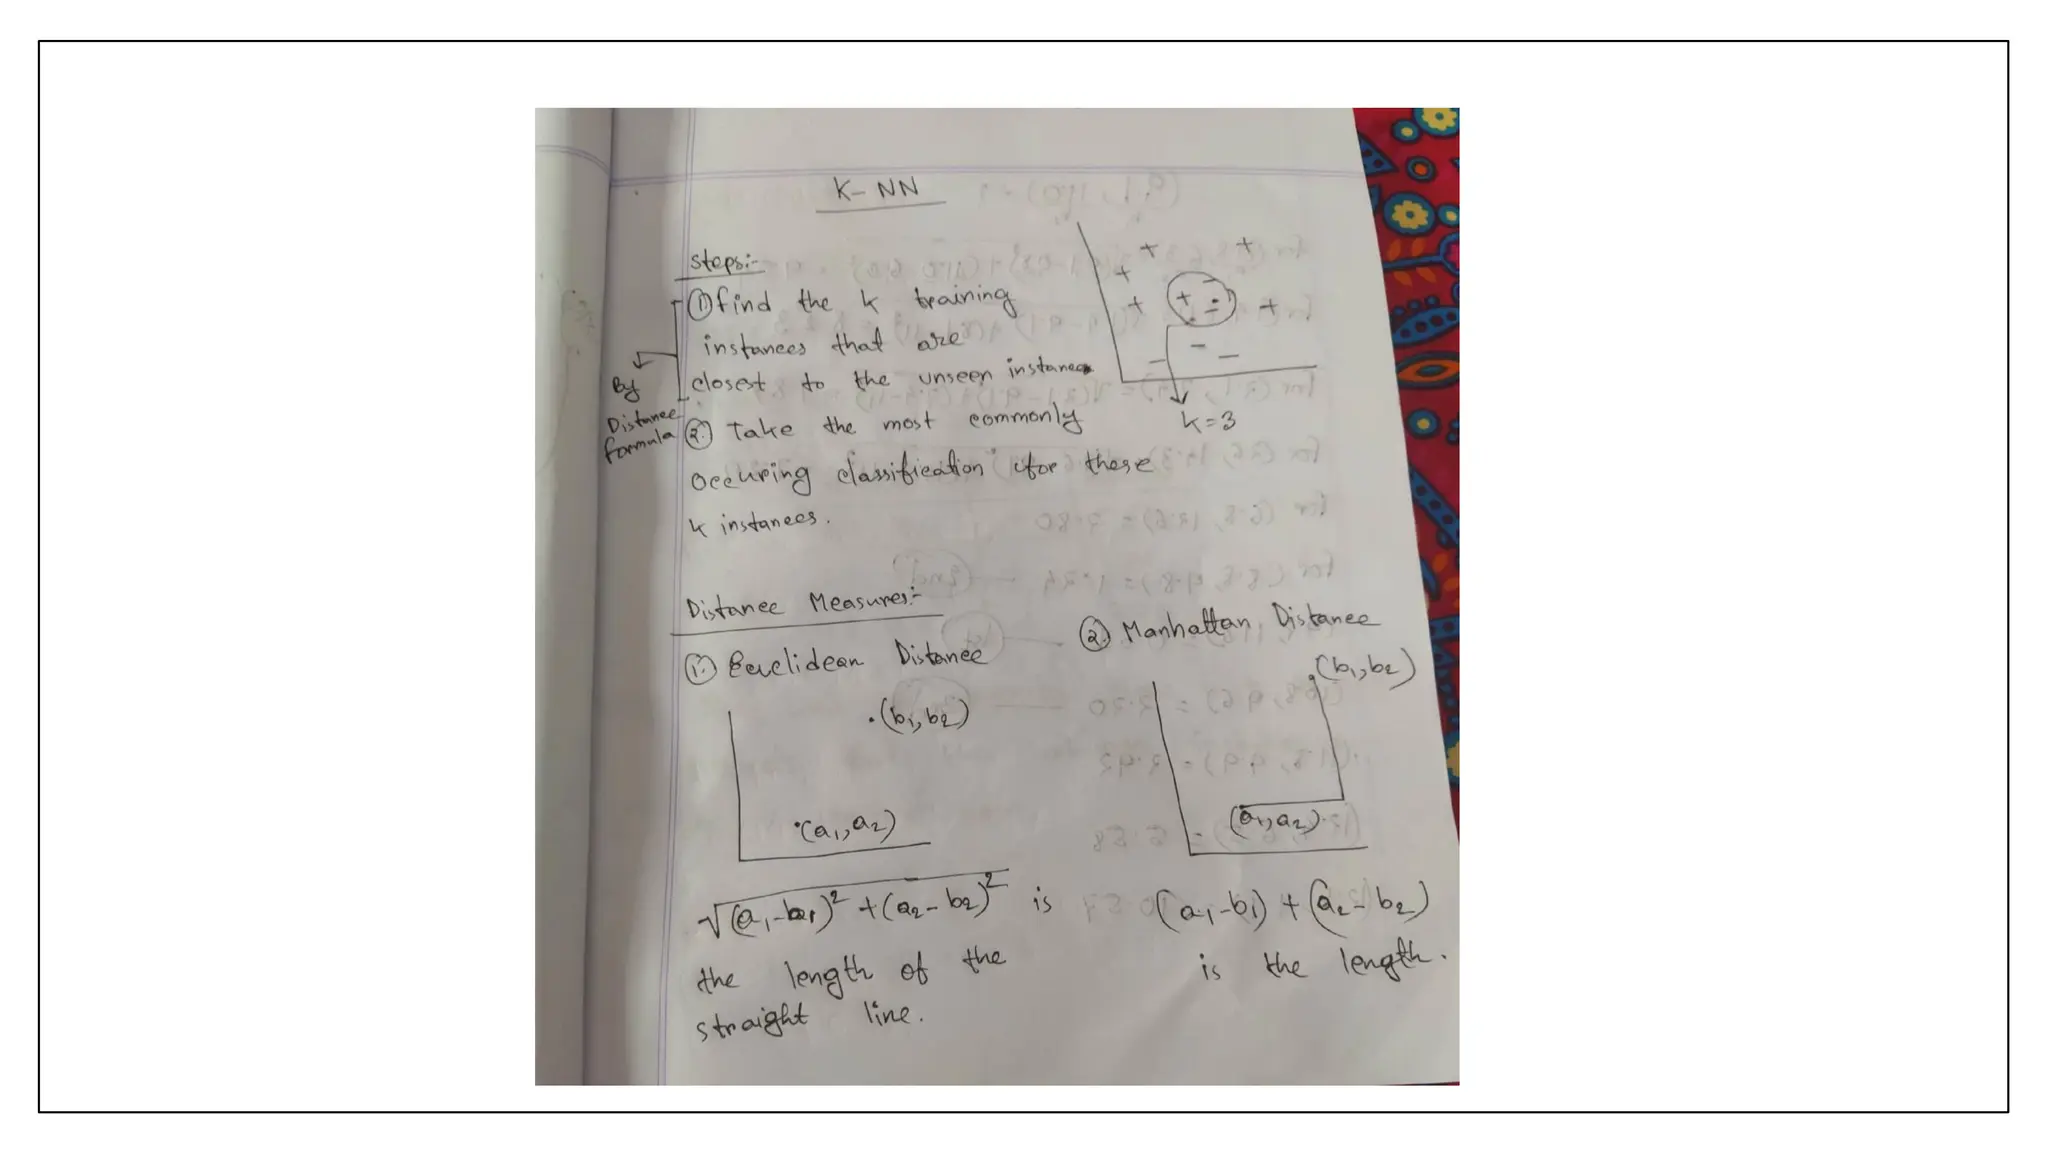 K-NN
Steps:-
① find the k training
instances that are
closest to the unseen instance
By
Distance
formula
② Take the most commonly
occuring classification for these
k instances.
+ +
+
+ + - +
-
- -
-
k=3
Distance Measures:-
① Euclidean Distance
(b1, b2)
(a1, a2)
√(a1-b1)² + (a2-b2)² is
the length of the
straight line.
② Manhattan Distance
(b1, b2)
(a1, a2)
(a1-b1) + (a2-b2)
is the length.